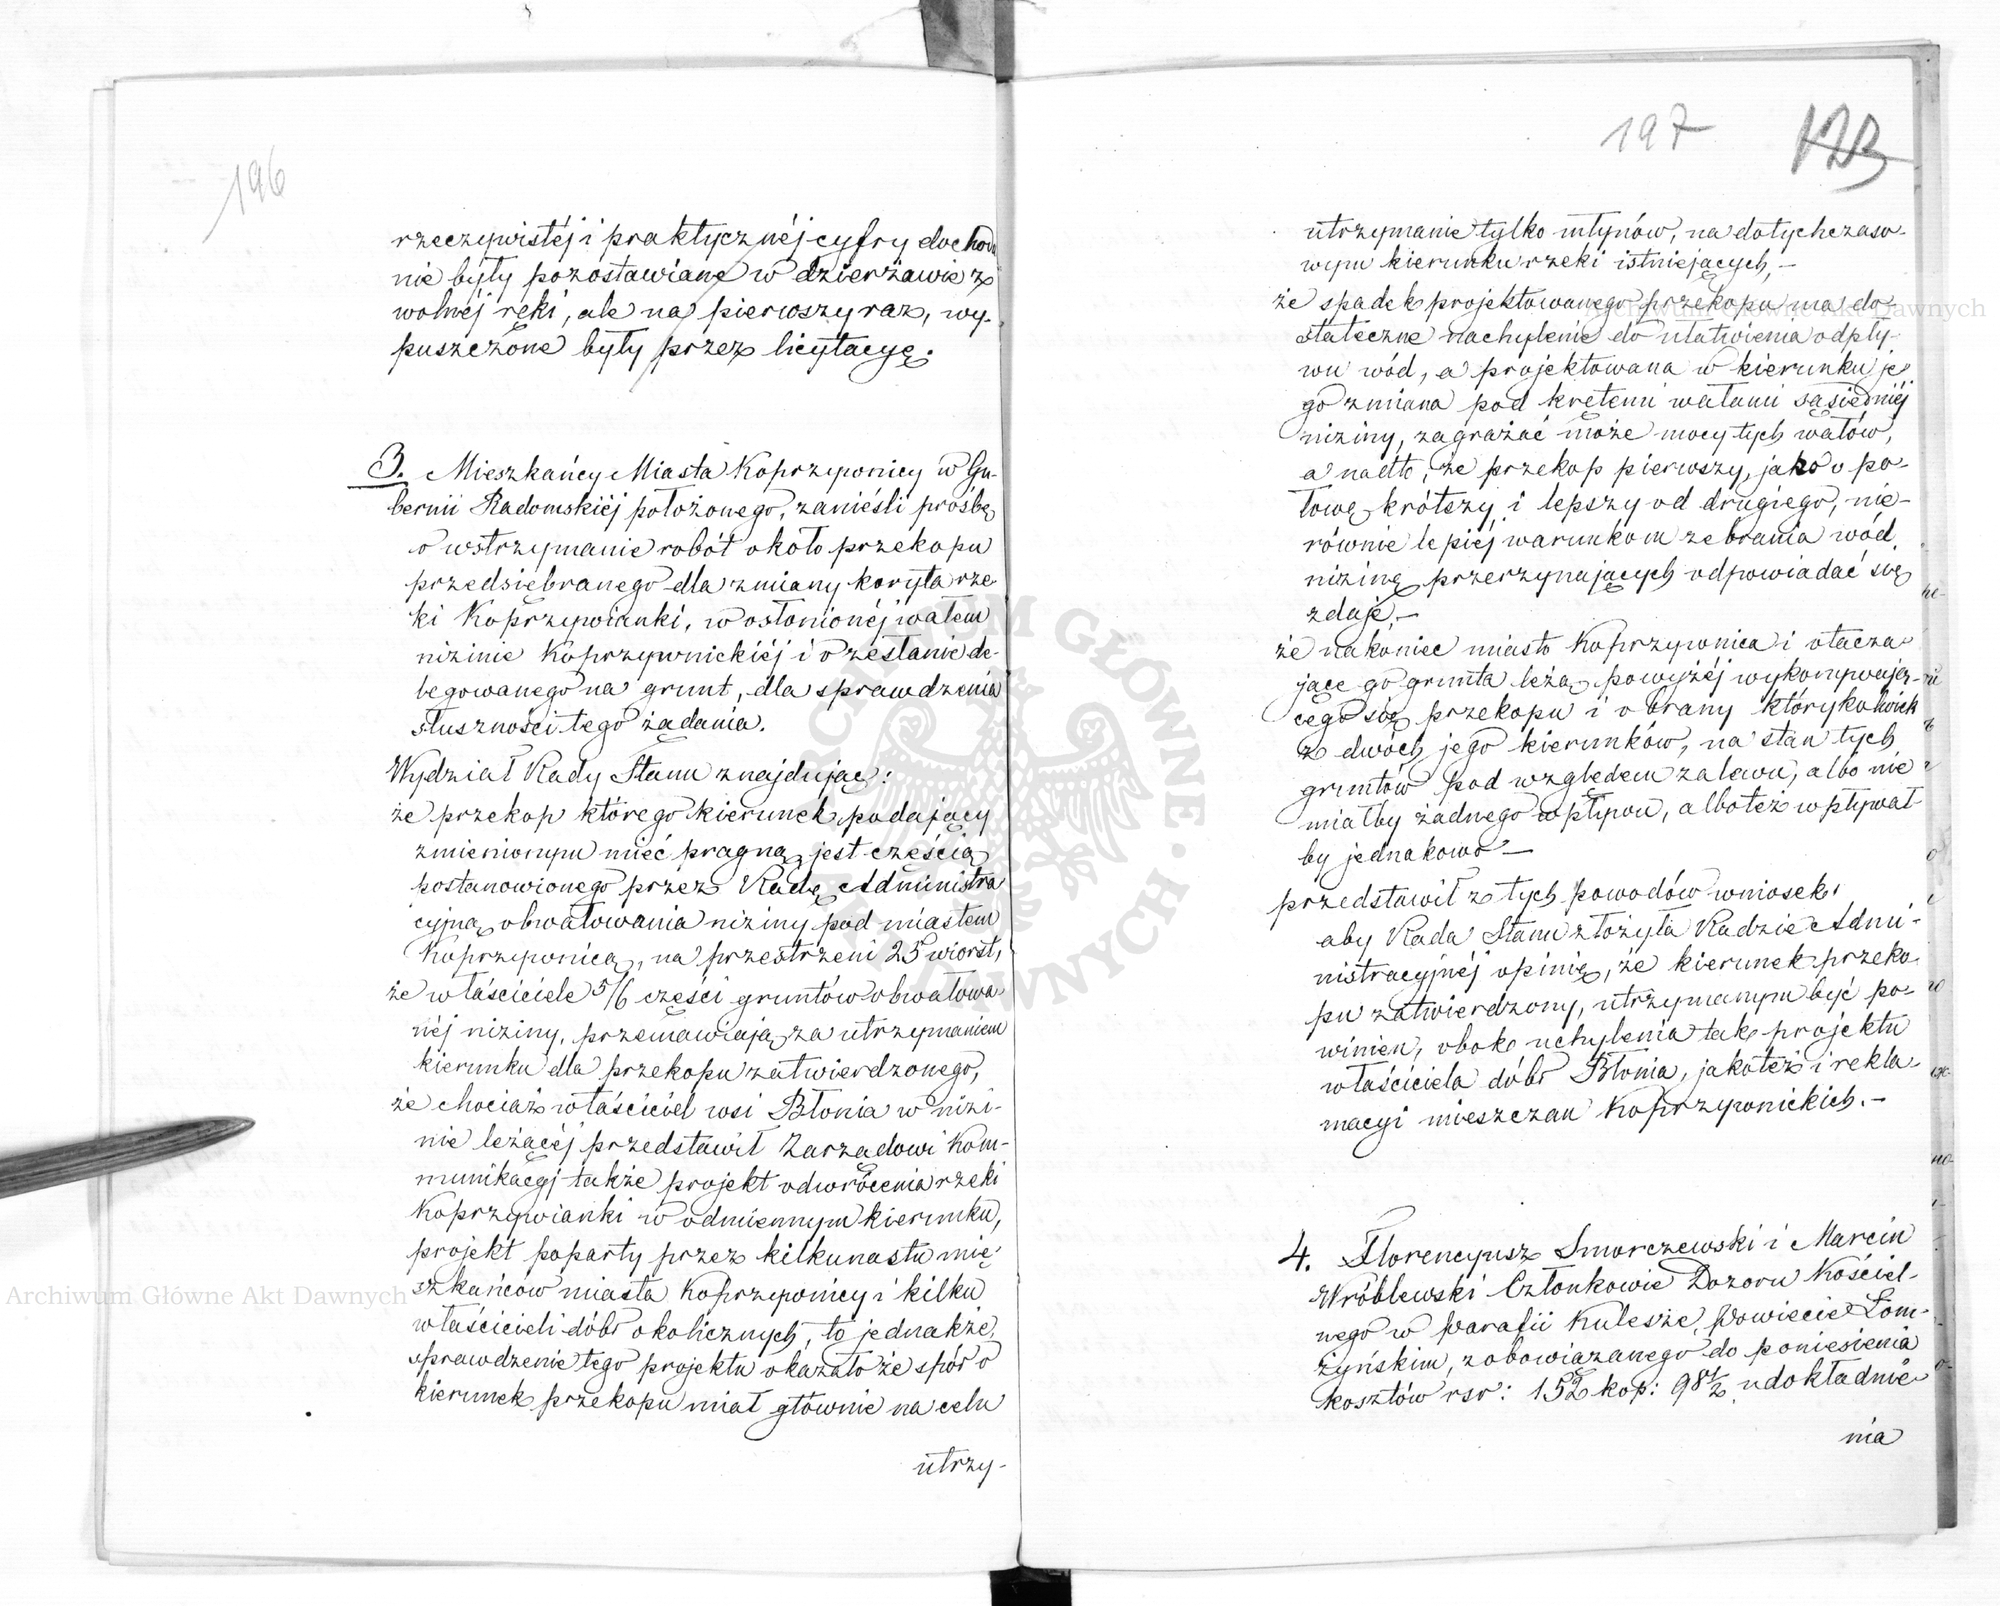 196
rzeczywistéj i praktycznéj cyfry dochodu
nie były pozostawiane w dzierżawie z
wolnéj ręki, ale na pierwszy raz, wy-
puszczone były przez licytacyę.
3. Mieszkańcy Miasta Koprzywnicy w Gu-
bernii Radomskiéj położonego, zanieśli prośbę
o wstrzymanie robót około przekopu
przedsiębranego dla zmiany koryta rze
ki Koprzywianki, w osłonionéj wałem
nizinie Koprzywnickiéj i o zesłanie de-
legowanego na grunt, dla sprawdzenia
słuszności tego żądania.
Wydział Rady Stanu znajdując:
że przekop którego kierunek podający
zmienionym mieć pragną, jest częścią
postanowionego przez Radę Administra
cyjną obwałowania niziny pod miastem
Koprzywnicą, na przestrzeni 25 wiorst,
że właściciele 5/6 części gruntów obwałowa
néj niziny, przemawiają za utrzymaniem
kierunku dla przekopu zatwierdzonego,
że chociaż właściciel wsi Błonia w nizi-
nie leżącéj przedstawił Zarządowi Kom-
munikacyj także projekt odwrócenia rzeki
Koprzywianki w odmiennym kierunku,
projekt poparty przez kilkunastu mie
szkańców miasta Koprzywnicy i kilku
właścicieli dóbr okolicznych, to jednakże
sprawdzenie tego projektu okazało że spór o
kierunek przekopu miał głównie na celu
utrzy-
197
123
utrzymanie tylko młynów, na dotychczaso-
wym kierunku rzeki istniejących, –
że spadek projektowanego przekopu ma do
stateczne nachylenie do ułatwienia odpły-
wu wód, a projektowana w kierunku je
go zmiana pod krętemi wałami sąsiedniéj
niziny, zagrażać może mocy tych wałów,
a nadto, że przekop pierwszy, jako o po-
łowę krótszy i lepszy od drugiego, nie-
równie lepiéj warunkom zebrania wód,
nizinę przerzynających odpowiadać się
zdaje, –
że nakoniec miasto Koprzywnica i otacza-
jące go grunta leżą powyżéj wykonywają-
cego się przekopu i obrany którykolwiek
z dwóch jego kierunków, na stan tych
gruntów pod względem zalewu, albo nie
miałby żadnego wpływu, albo też wpływał
by jednakowo –
przedstawił z tych powodów wniosek:
aby Rada Stanu złożyła Radzie Admi-
nistracyjnéj opinię, że kierunek przeko
pu zatwierdzony, utrzymanym być po-
winien, obok uchylenia tak projektu
właściciela dóbr Błonia, jakoteż i rekla-
macyi mieszczan Koprzywnickich. –
4. Florencyusz Smorczewski i Marcin
Wróblewski Członkowie Dozoru Kościel-
nego w parafii Kulesze, Powiecie Łom-
żyńskim, zobowiązanego do poniesienia
kosztów rsr: 152 kop: 98 1/2 udokładnie
nia
Archiwum Główne Akt Dawnych
Archiwum Główne Akt Dawnych
ARCHIWUM GŁÓWNE · AKT DAWNYCH ·